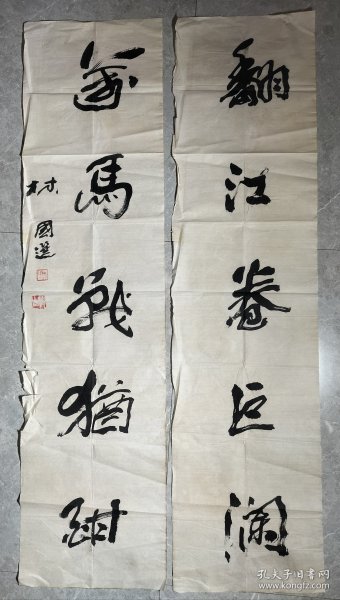 翻江卷巨澜
萬馬戰猶酣
林國選
孔夫子旧书网
www.kongfz.com